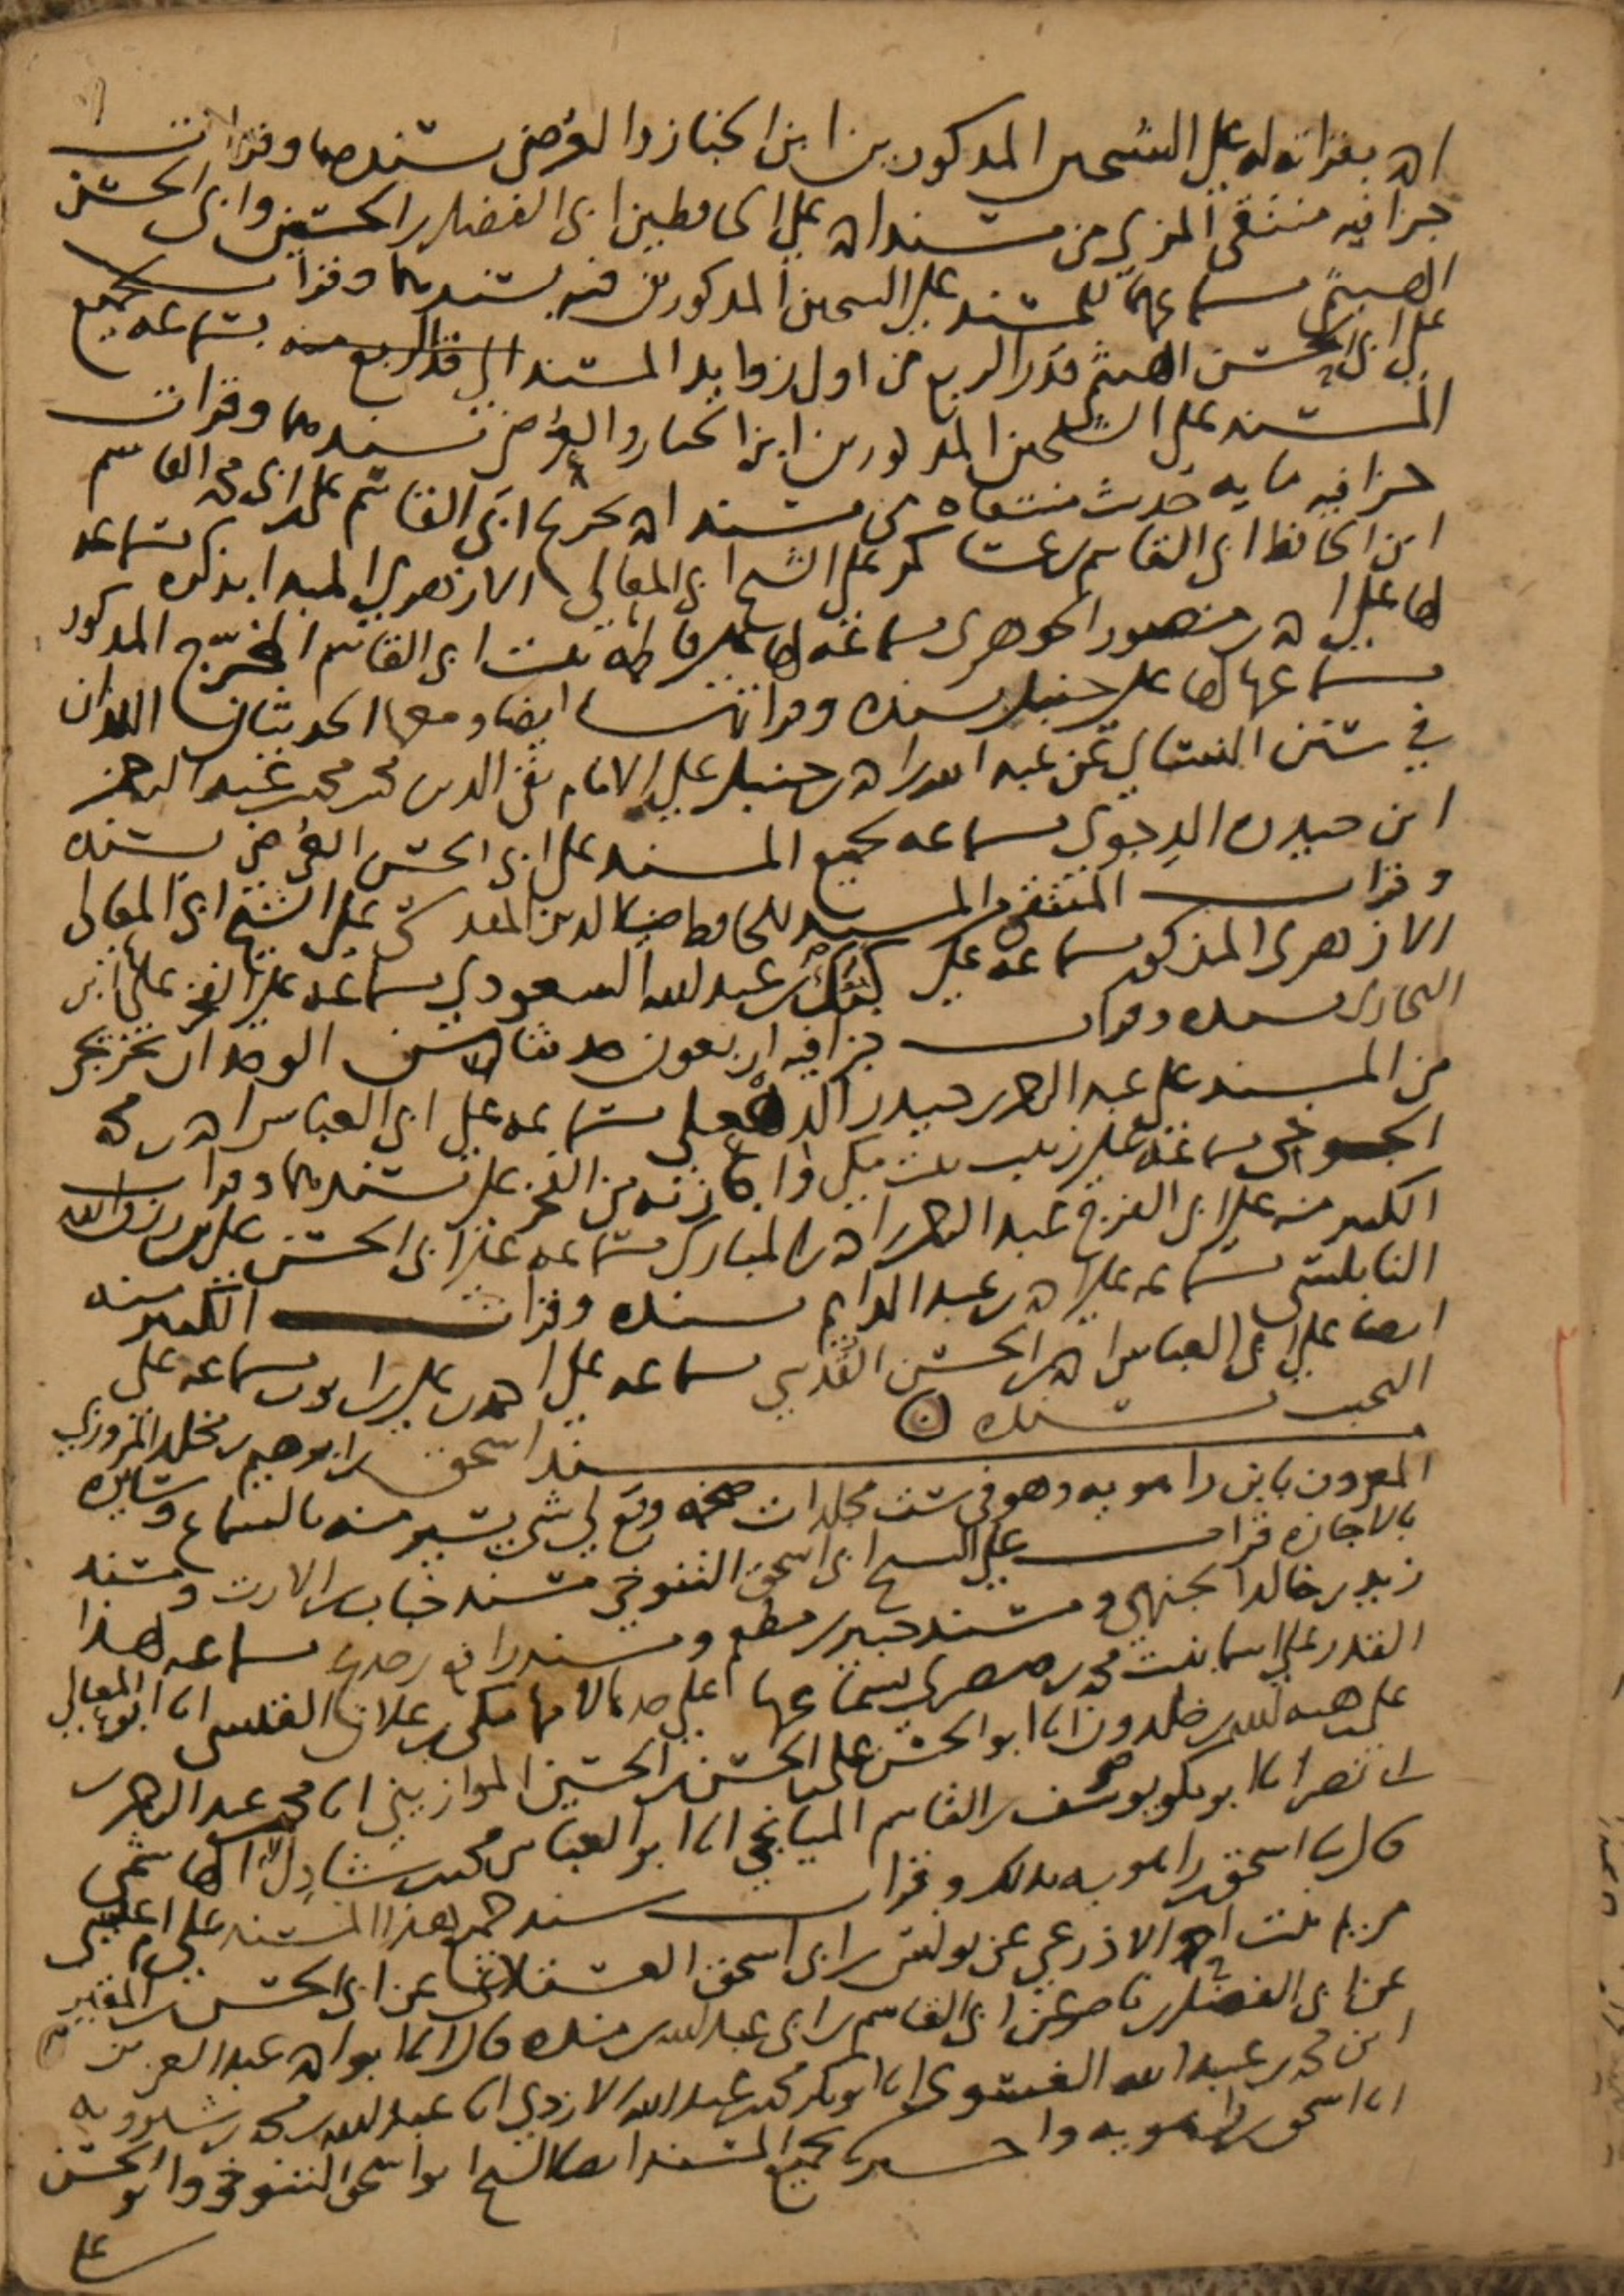 بقراته له على الشيخين المذكورين ابن الخباز والعرضي بسندهما وقرات
جزا فيه منتقى المزي من مسند احمد على الحافظين ابي الفضل بن الحسين وابي الحسن
الهيثمي سماعهما للمسند على الشيخين المذكورين فيه بسندهما وقرات
على ابي الحسن الهيثمي قدر الربع من اول زوايد المسند الي قدر الربع منه بسماعه لجميع
المسند على الشيخين المذكورين ابن الخباز والعرضي بسندهما وقرات
جزا فيه مايه حديث منتقاه من مسند احمد تخريج ابي القاسم على ابي محمد القاسم
ابن الحافظ ابي القاسم بن عساكر على الشيخ ابي المعالي الازهري المبدا بذكره بسماعه
لها على احمد بن منصور الجوهري بسماعه لها على فاطمة بنت ابي القاسم المخرج المذكور
بسماعها لها على حنبل بسنده وقراتها ايضا ومعها الحديثان اللذان
في سنن النسائي عن عبد الله بن احمد بن حنبل على الامام تقي الدين محمد بن محمد بن عبد الرحمن
ابن حيدره الدجوي بسماعه لجميع المسند على ابي الحسن العرضي بسنده
وقرات المنتقى من المسند للحافظ ضيا الدين المقدسي على الشيخ ابي المعالي
الازهري المذكور بسماعه على عبد الله السعودي بسماعه على الفخر علي ابن
البخاري بسنده وقرات جزا فيه اربعون حديثا من الوحدان تخريجه
من المسند على عبد الرحمن بن حيدر الدهقلي بسماعه على ابي العباس احمد بن محمد
الجوخي بسماعه على زينب بنت مكي واجازته من الفخر علي بسندهما وقرات
الكثير منه على ابي الفرج عبد الرحمن بن احمد بن المبارك بسماعه على ابي الحسن علي
النابلسي بسماعه على احمد بن عبد الدايم بسنده وقرات الكثير منه
ايضا على ابي العباس احمد بن الحسن القدسي بسماعه على احمد بن علي بن ايوب بسماعه على
النجيب بسنده
مسند اسحق بن ابرهيم بن مخلد المروزي
المعروف بابن راهويه وهو في ست مجلدات ضخمه وقع لي شي يسير منه بالسماع وسايره
بالاجازه قرات على الشيخ ابي اسحق التنوخي مسند خباب بن الارت ومسند
زيد بن خالد الجهني ومسند جبير بن مطعم ومسند رافع بن خديج بسماعه لهذا
القدر على اسما بنت محمد بن صصري بسماعها على جدها لامها مكي بن علان القيسي انا ابو المعالي
علي بن هبه الله بن خلدون انا ابو الحسن علي بن الحسن بن الحسين الموازيني انا محمد بن عبد الرحمن
بن ابي نصر انا ابو بكر يوسف بن القاسم الميانجي انا ابو العباس محمد بن شادل الهاشمي
قال ثنا اسحق بن راهويه بذلك وقرات مسند من هذا المسند على ام عيسى
مريم بنت احمد الاذرعي عن يونس بن ابي اسحق العسقلاني عن ابي الحسن بن المقير
عن ابي الفضل بن ناصر عن ابي القاسم بن ابي عبد الله بن منده قال انا ابو احمد عبد العزيز
ابن محمد بن عبد الله الفسوي انا ابو بكر محمد بن عبد الله الازدي انا عبد الله بن محمد بن شيرويه
انا اسحق بن راهويه واخبرنا بجميع المسند ايضا الشيخ ابو اسحق التنوخي وابو الحسن
علي